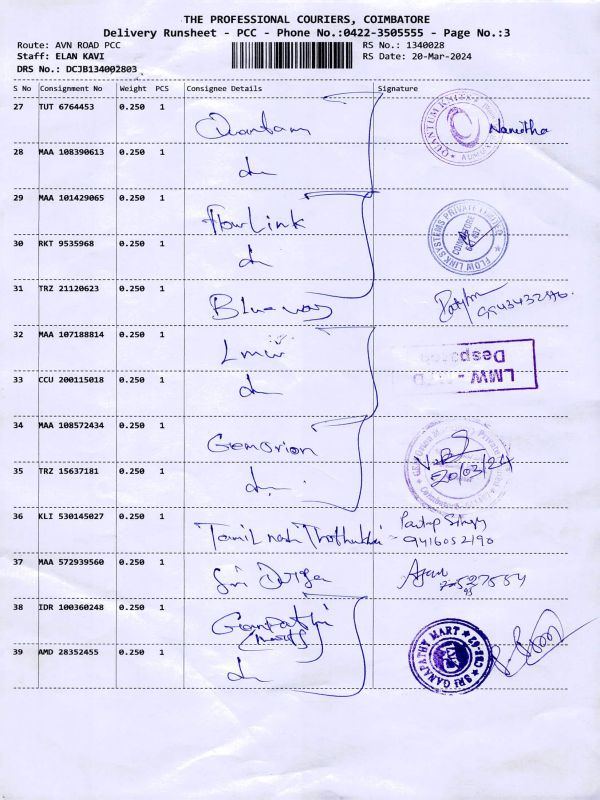 THE PROFESSIONAL COURIERS, COIMBATORE
Delivery Runsheet - PCC - Phone No.:0422-3505555 - Page No.:3
Route: AVN ROAD PCC RS No.: 1340028
Staff: ELAN KAVI RS Date: 20-Mar-2024
DRS No.: DCJB134002803
S No Consignment No Weight PCS Consignee Details Signature
27 TUT 6764453 0.250 1 Quantam Namitha
28 MAA 108390613 0.250 1
29 MAA 101429065 0.250 1 Flow Link
FLOW LINK SYSTEMS PRIVATE LIMITED
30 RKT 9535968 0.250 1
31 TRZ 21120623 0.250 1 Blueway
32 MAA 107188814 0.250 1 Lmw
LMW - LTD
33 CCU 200115018 0.250 1
34 MAA 108572434 0.250 1 Gemorion
20/03/24
35 TRZ 15637181 0.250 1
36 KLI 530145027 0.250 1 Tamil nadu
9416052190
37 MAA 572939560 0.250 1 Sri Durga
38 IDR 100360248 0.250 1 Ganpathy mart
SRI GANAPATHY MART CBE-62
39 AMD 28352455 0.250 1